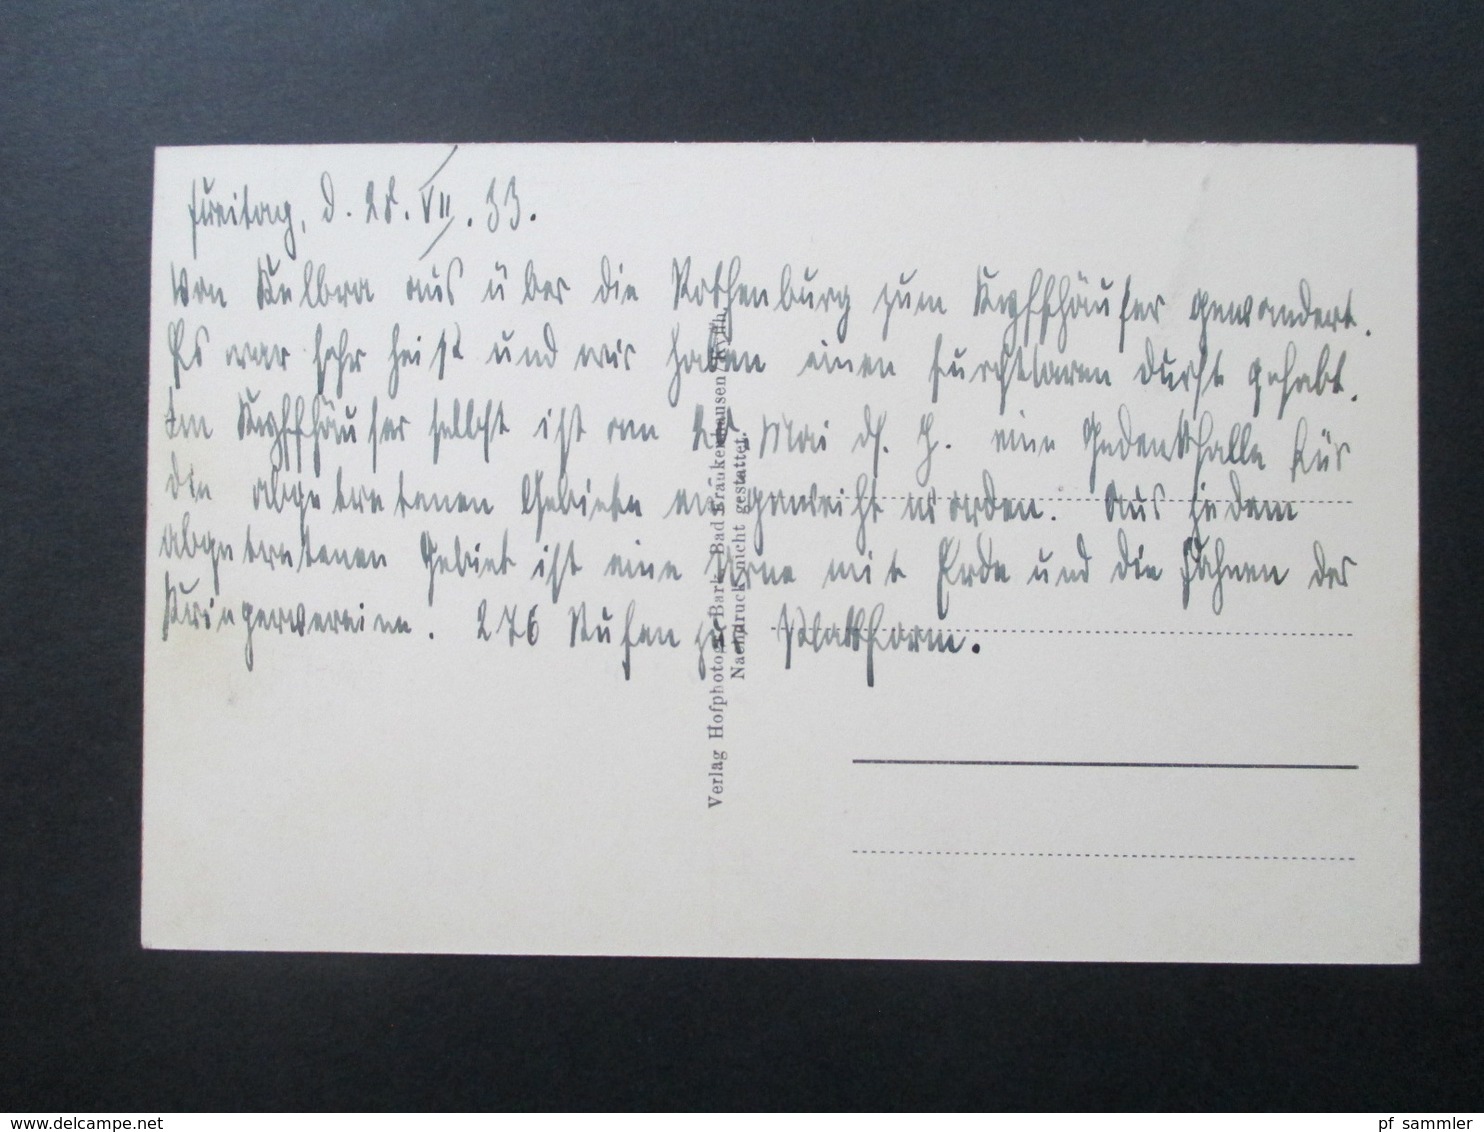 Freitag, d. 28. VII. 33.
Von Kelbra aus über die Rothenburg zum Kyffhäuser gewandert.
Es war sehr heiß und wir haben einen furchtbaren Durst gehabt.
Im Kyffhäuser selbst ist am Mai ds. J. eine Gedenkhalle für
die abgetretenen Gebiete eingeweiht worden. Aus jedem
abgetretenen Gebiet ist eine Urne mit Erde und die Fahnen der
Kriegervereine. 276 Stufen zur Plattform.
Verlag Hofphotogr. Bark, Bad Frankenhausen Kyffh.
Nachdruck nicht gestattet.
pf sammler